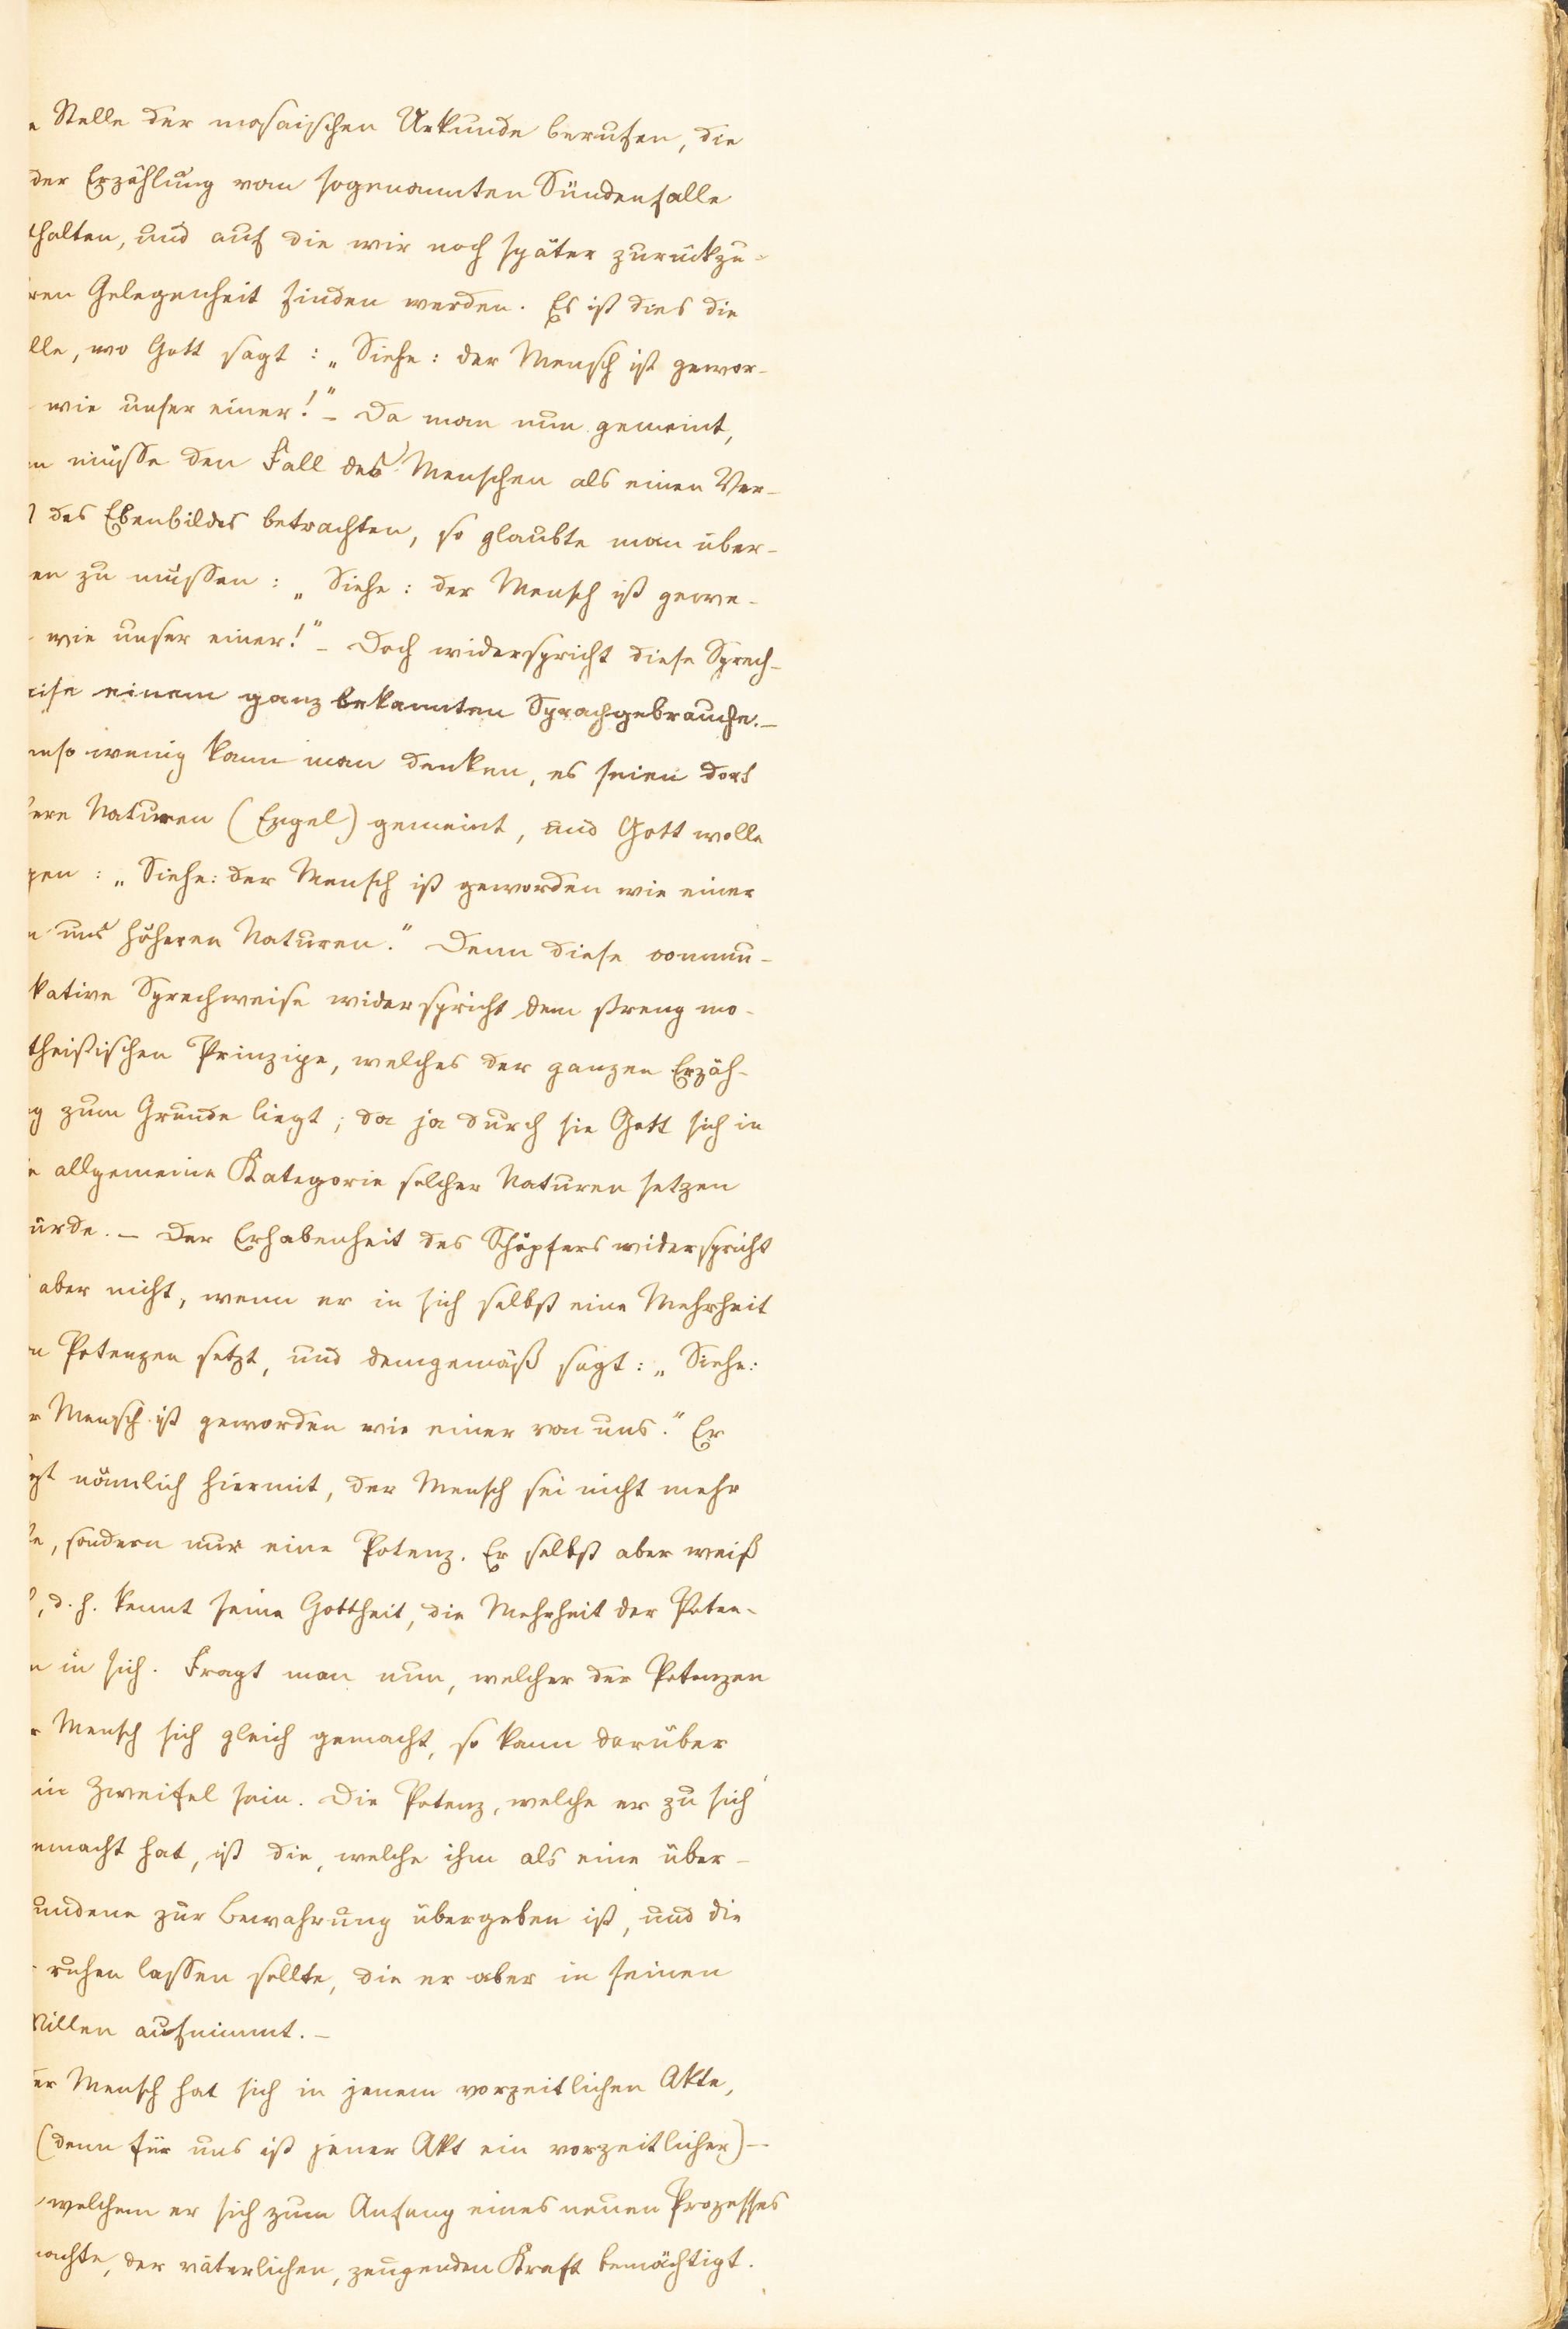 e Stelle der mosaischen Urkunde berufen, die
der Erzählung vom sogenannten Sündenfalle
thalten, und auf die wir noch später zurückzu-
ren Gelegenheit finden werden. Es ist dies die
lle, wo Gott sagt: „Siehe: der Mensch ist gewor-
wie unser einer!" – Da man nun gemeint,
n müsse den Fall des Menschen als einen Ver-
des Ebenbildes betrachten, so glaubte man über-
en zu müssen: „Siehe: der Mensch ist gewe-
wie unser einer!" – Doch widerspricht diese Sprech-
eise einem ganz bekannten Sprachgebrauche. –
enso wenig kann man denken, es seien dort
ere Naturen (Engel) gemeint, und Gott wolle
gen: „Siehe: der Mensch ist geworden wie einer
n uns höheren Naturen." Denn diese commu-
kative Sprechweise widerspricht dem streng mo-
theistischen Prinzipe, welches der ganzen Erzäh-
ng zum Grunde liegt; da ja durch sie Gott sich in
e allgemeine Kategorie solcher Naturen setzen
ürde. – Der Erhabenheit des Schöpfers widerspricht
aber nicht, wenn er in sich selbst eine Mehrheit
n Potenzen setzt, und demgemäß sagt: „Siehe:
r Mensch ist geworden wie einer von uns." Er
gt nämlich hiermit, der Mensch sei nicht mehr
le, sondern nur eine Potenz. Er selbst aber weiß
, d. h. kennt seine Gottheit, die Mehrheit der Poten-
n in sich. Fragt man nun, welcher der Potenzen
r Mensch sich gleich gemacht, so kann darüber
in Zweifel sein. Die Potenz, welche er zu sich
emacht hat, ist die, welche ihm als eine über-
undene zur Bewahrung übergeben ist, und die
ruhen lassen sollte, die er aber in seinen
Willen aufnimmt. –
er Mensch hat sich in jenem vorzeitlichen Akte,
(denn für uns ist jener Akt ein vorzeitlicher) –
welchem er sich zum Anfang eines neuen Prozesses
achte, der väterlichen, zeugenden Kraft bemächtigt.